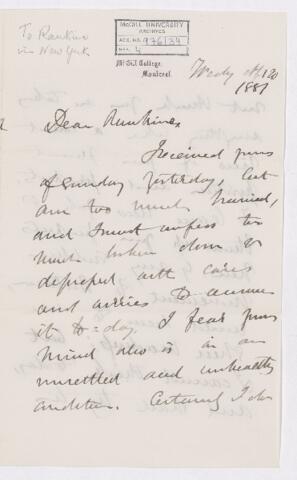 To Rankine
via New York
McGILL UNIVERSITY
ARCHIVES
ACC. NO. 976/34
REF. 4
McGill College,
Montreal.
Wedy
1881
Dear Rankine
Received yours
of Sunday yesterday, but
am too much hurried,
and I must confess too
much broken down &
depressed with cares
and worries to answer
it to=day. I fear your
mind also is in an
unsettled and unhealthy
condition. Certainly I do